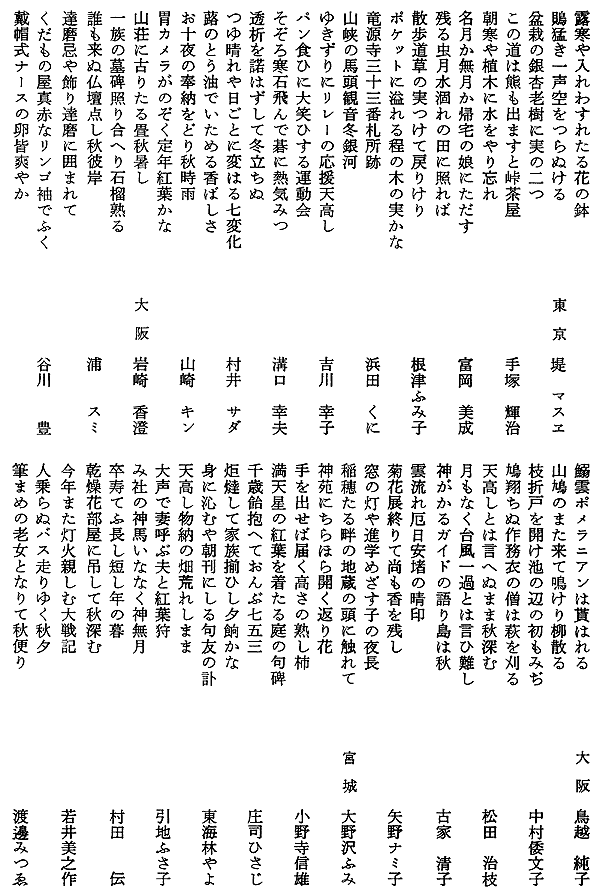 露寒や入れわすれたる花の鉢
鵙猛き一声空をつらぬける
東京 堤 マスヱ
盆栽の銀杏老樹に実の二つ
この道は熊も出ますと峠茶屋
手塚 輝治
朝寒や植木に水をやり忘れ
名月か無月か帰宅の娘にただす
富岡 美成
残る虫月水涸れの田に照れば
散歩道草の実つけて戻りけり
根津ふみ子
ポケットに溢れる程の木の実かな
竜源寺三十三番札所跡
浜田 くに
山峡の馬頭観音冬銀河
ゆきずりにリレーの応援天高し
吉川 幸子
パン食ひに大笑ひする運動会
そぞろ寒石飛んで碁に熱気みつ
溝口 幸夫
透析を諾はずして冬立ちぬ
つゆ晴れや日ごとに変はる七変化
村井 サダ
蕗のとう油でいためる香ばしさ
お十夜の奉納をどり秋時雨
山崎 キン
胃カメラがのぞく定年紅葉かな
山荘に古りたる畳秋暑し
大阪 岩崎 香澄
一族の墓碑照り合へり石榴熟る
誰も来ぬ仏壇点し秋彼岸
浦 スミ
達磨忌や飾り達磨に囲まれて
くだもの屋真赤なリンゴ袖でふく
谷川 豊
戴帽式ナースの卵皆爽やか
鰯雲ポメラニアンは貰はれる
大阪 鳥越 純子
山鳩のまた来て鳴けり柳散る
枝折戸を開け池の辺の初もみぢ
中村倭文子
鳩翔ちぬ作務衣の僧は萩を刈る
天高しとは言へぬまま秋深む
松田 治枝
月もなく台風一過とは言ひ難し
神がかるガイドの語り島は秋
古家 清子
雲流れ厄日安堵の晴印
菊花展終りて尚も香を残し
矢野ナミ子
窓の灯や進学めざす子の夜長
稲穂たる畔の地蔵の頭に触れて
宮城 大野沢ふみ
神苑にちらほら開く返り花
手を出せば届く高さの熟し柿
小野寺信雄
満天星の紅葉を着たる庭の句碑
千歳飴抱へておんぶ七五三
庄司ひさじ
炬燵して家族揃ひし夕餉かな
身に沁むや朝刊にしる句友の訃
東海林やよ
天高し物納の畑荒れしまま
大声で妻呼ぶ夫と紅葉狩
引地ふさ子
み社の神馬いななく神無月
卒寿てふ長し短し年の暮
村田 伝
乾燥花部屋に吊して秋深む
今年また灯火親しむ大戦記
若井美之作
人乗らぬバス走りゆく秋夕
筆まめの老女となりて秋便り
渡邊みつゑ